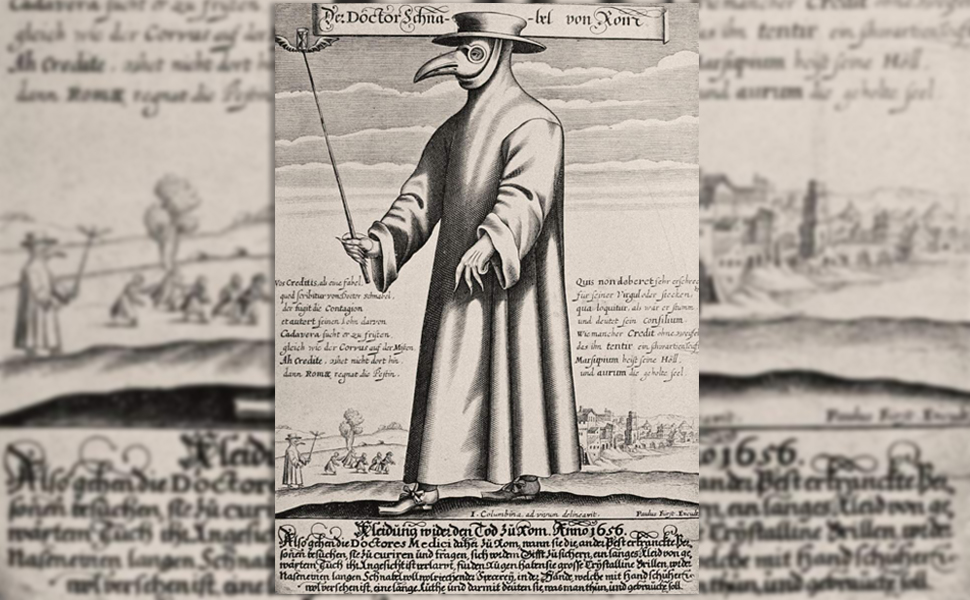 Der Doctor Schna-bel von Rom
Vos Creditis, als eine fabel,
quod scribitur vom Doctor Schnabel,
der fugit die Contagion
et aufert seinen Lohn darvon
Cadavera sucht er zu fristen
gleich wie der Corvus auf der Misten
Ah Credite, ziehet nicht dort hin
dann Romæ regnat die Pestin.
Quis non deberet sehr erschrec
für seiner Virgul oder stecken
qua loquitur, als wär er stumm
und deutet sein Consilium
Wie mancher Credit ohne zweiffel
das ihn tentir ein schwartzen teuff
Marsupium heist seine Höll,
und aurum die geholte seel.
I. Columbina, ad vivum delineavit. Paulus Fürst Excud
Kleidung wider den Tod zu Rom. Anno 1656.
Also gehen die Doctores Medici daher zu Rom, wann sie die ander Pest erkranckte Per-
sonen besuchen, sie zu curiren und tragen, sich widern Gifft zu sichern, ein langes Kleid von ge-
wäxtem Tuch ihr Angesicht ist verlarvt, für den Augen haben sie grosse Crystalline Brillen, wider
Nasen einen langen Schnabel voll wolriechender Specerey, in der Hände, welche mit Handschuher
wol versehen ist, eine lange Ruthe und darmit deuten sie, was man thun, und gebrauche soll.